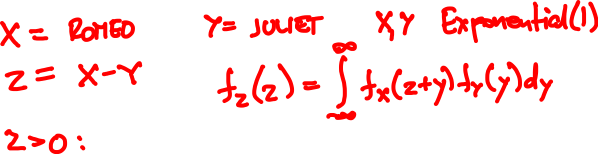 X = ROMEO Y = JULIET X,Y Exponential(1)
Z = X-Y f_Z(z) = ∫_{-∞}^{∞} f_X(z+y) f_Y(y) dy
z>0: